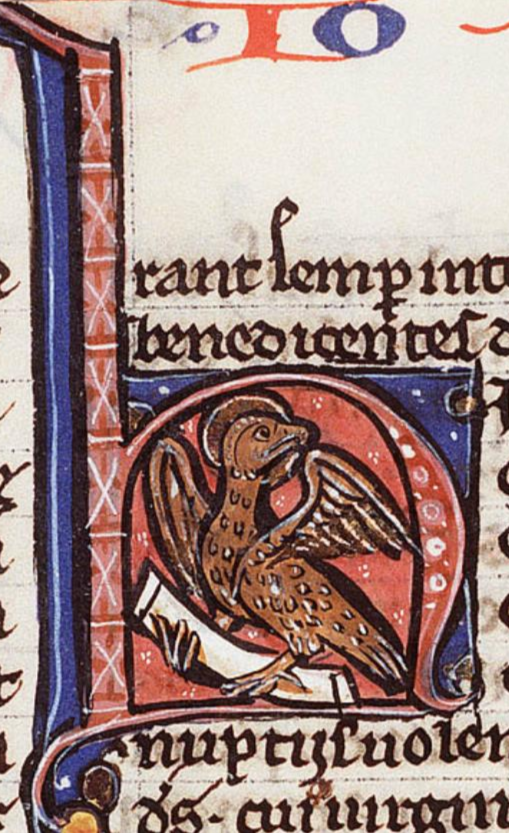 IO
rant semp int
benedicentes d
H
nuptijs uolen
ds. cui uirgin